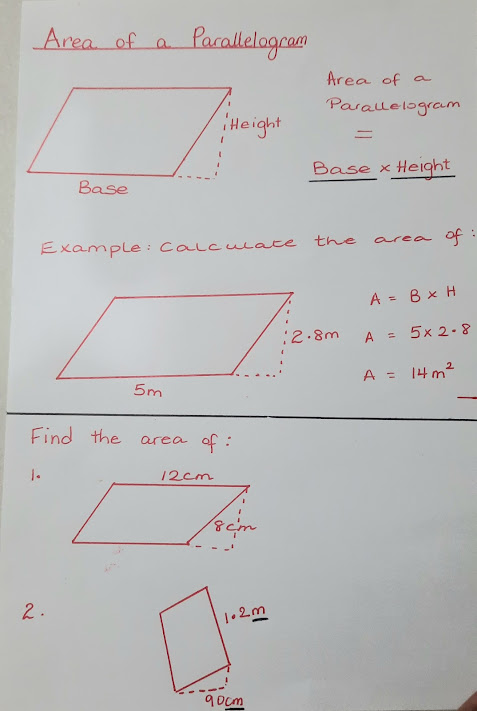 Area of a Parallelogram
Area of a
Parallelogram
=
Base x Height
Height
Base
Example: Calculate the area of:
A = B x H
2.8m
A = 5 x 2.8
A = 14m²
5m
Find the area of:
1.
12cm
8cm
2.
1.2m
90cm